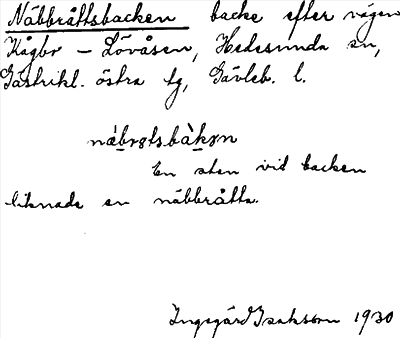 Näbbråttsbacken backe efter vägen
Kågbo – Lövåsen, Hedesunda sn,
Gästrikl. östra tg, Gävleb. l.
En sten vid backen
liknade en näbbråtta.
Ingegärd Isaksson 1930